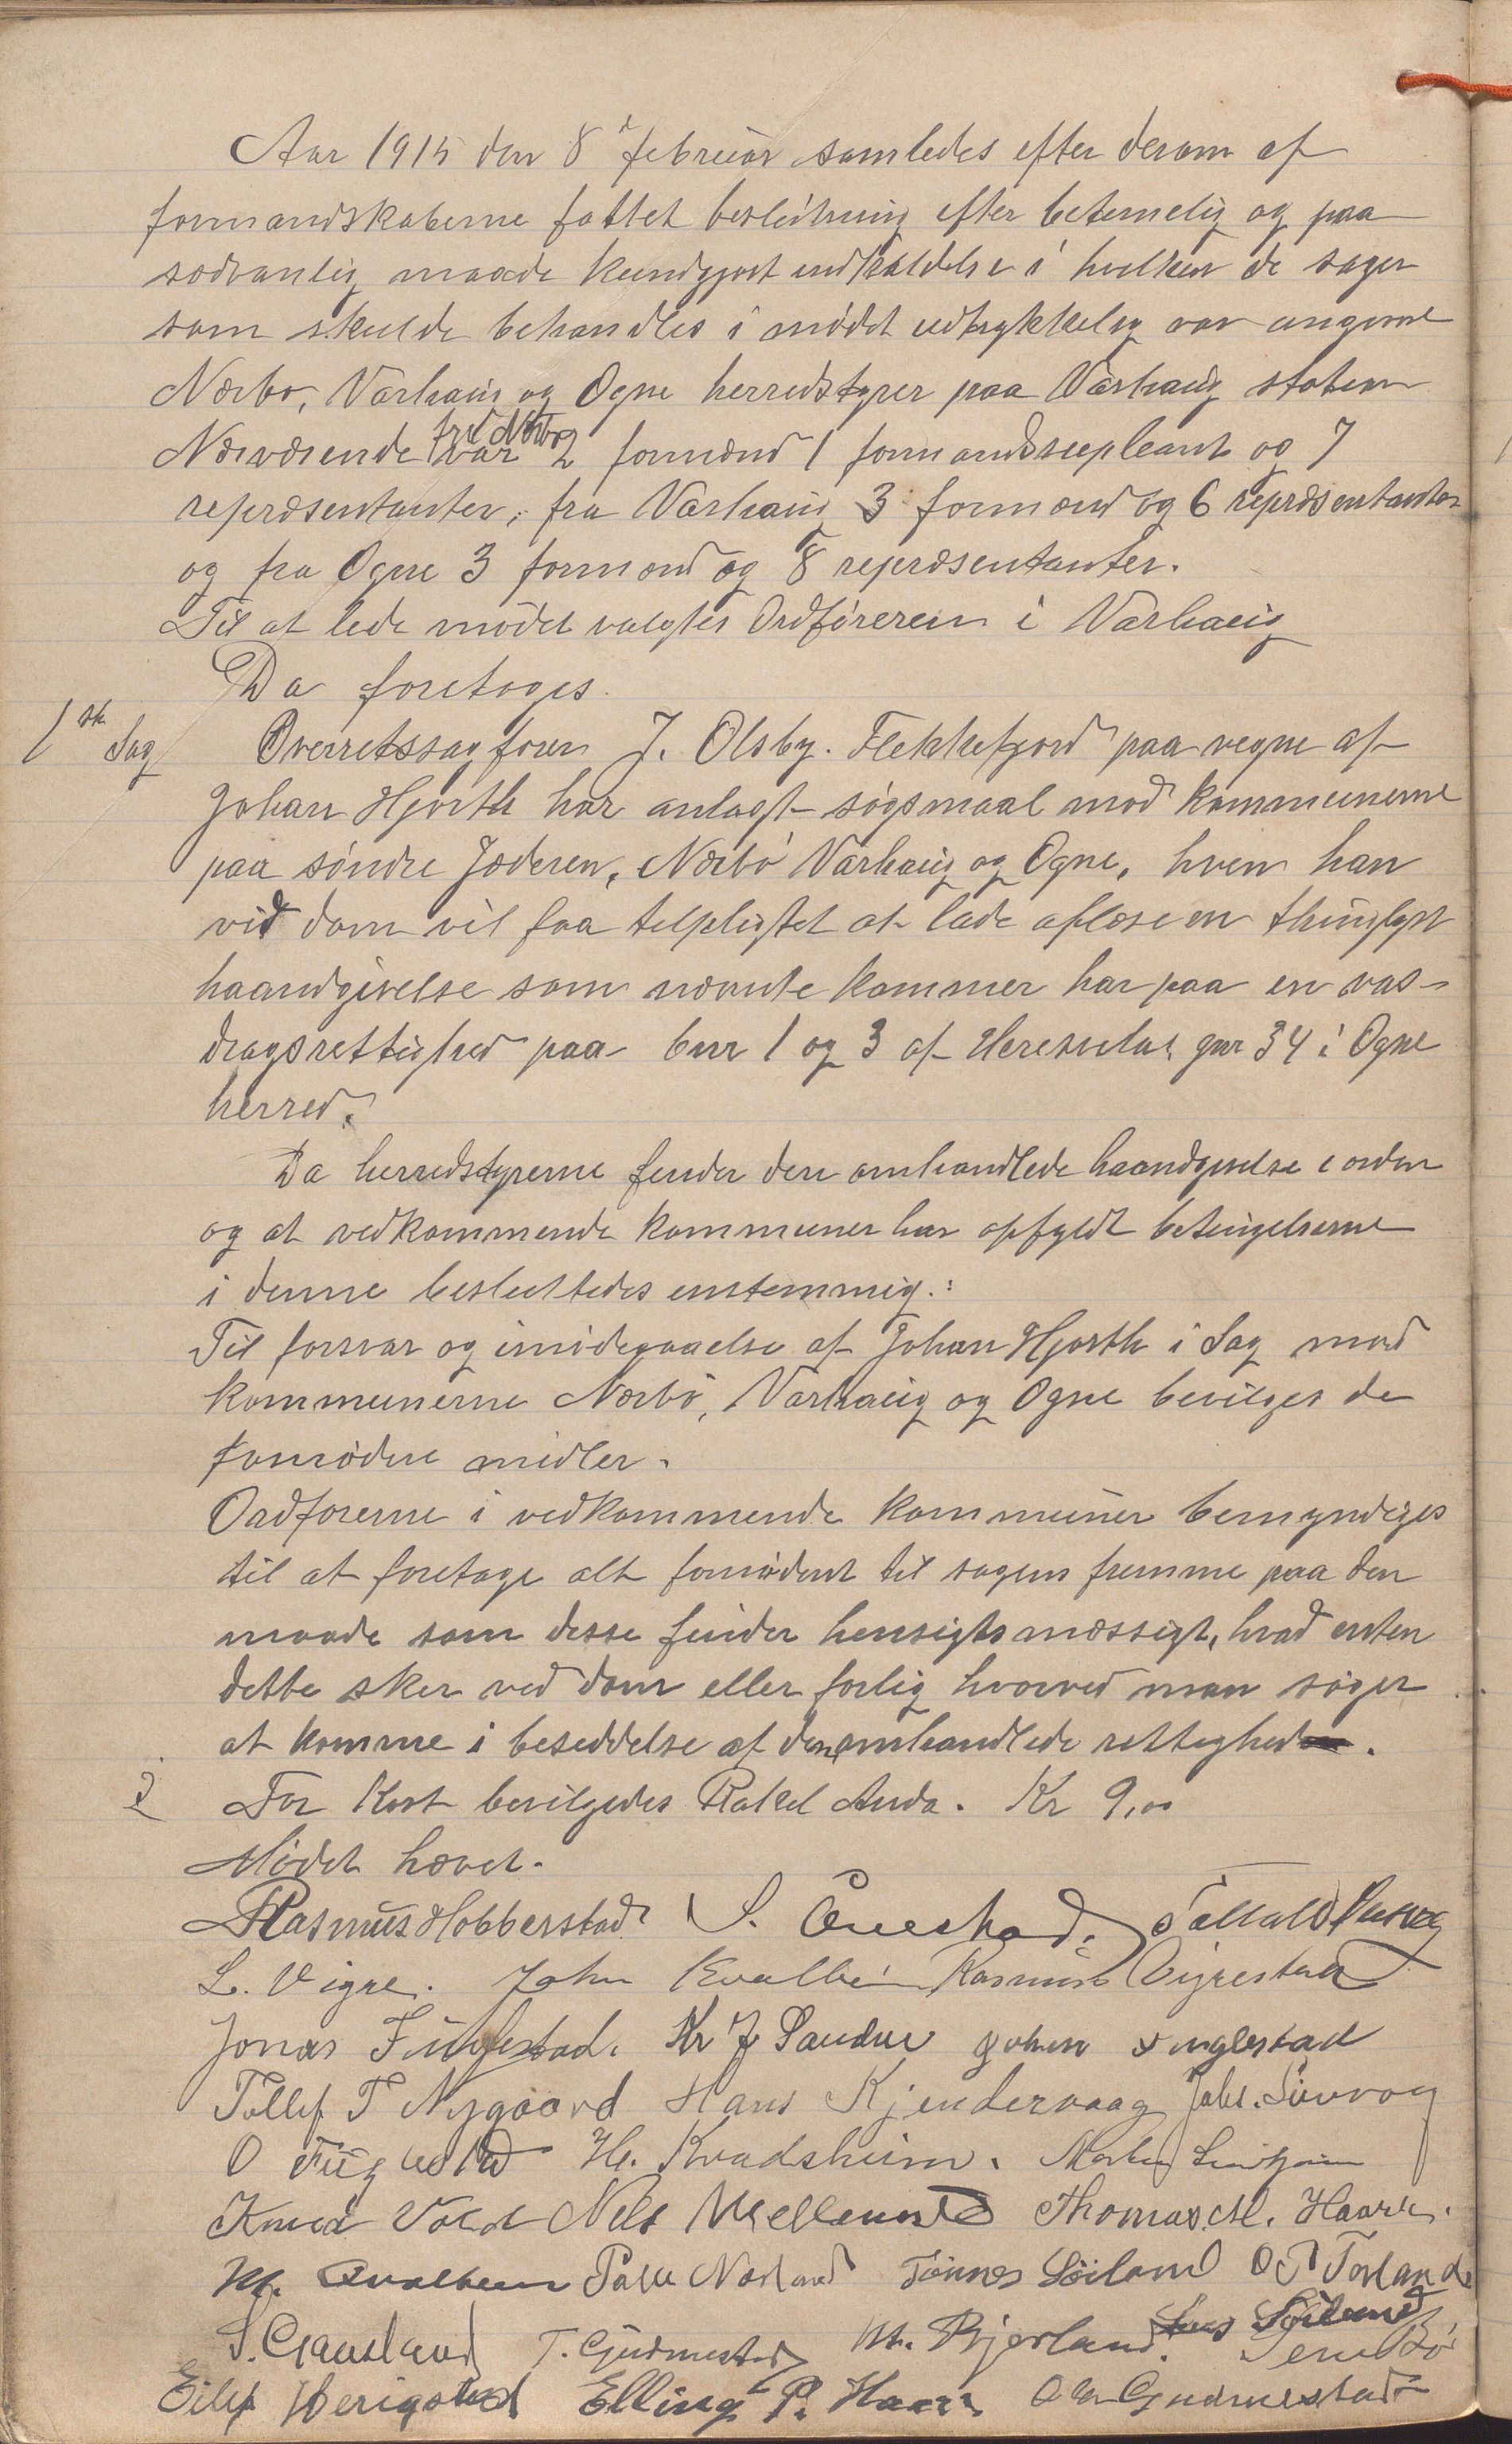 Aar 1915 den 8d februar samledes efter derom af
formandskaberne fattet beslutning efter betimelig og paa
sedvanlig maade kundgjort indkaldelse i hvilken de sager
som skulde behandles i mødet udtrykkelig var angivne
Nærbo, Varhaug og Ogne herredstyrer paa Varhaug station
Nærværende fra Nærbo var 2 formænd 1 formandssupleant og 7
repræsentanter, fra Varhaug 3 formænd og 6 repræsentanter
og fra Ogne 3 formænd og 8 repræsentanter.
Til at lede mødet valgtes Ordføreren i Varhaug
Da foretoges.
1ste Sag Overretssagfører J. Olsby. Flekkefjord paa vegne af
Johan Hjorth har anlagt søgsmaal mod kommunerne
paa søndre Jæderen, Nærbø Varhaug og Ogne, hvem han
vid dom vil faa tilpligtet at lade aflæse en thinglyst
haandgivelse som nævnte kommuner har paa en vas-
dragsrettighed paa bnr 1 og 3 af gnr 34 i Ogne
herred.
Da herredstyrerne finder den omhandlede haandgivelse i orden
og at vedkommende kommuner har opfyldt betingelserne
i denne besluttedes enstemmig.:
Til forsvar og imødegaaelse af Johan Hjorth i Sag mod
kommunerne Nærbø, Varhaug og Ogne bevilges de
fornødne midler.
Ordførerne i vedkommende kommuner bemyndiges
til at foretage alt fornødent til sagens fremme paa den
maade som desse finder hensigtsmæssigt, hvad enten
dette sker ved dom eller forlig hvorved man søger
at komme i besiddelse af den omhandlede rettighed.
2 For Kost bevilgedes Rakel Anda. Kr 9,00
Mødet hævet.
Rasmus Hobberstad S.
L. Vigre. John Kvalbein Rasmus
Jonas Fuglestad. Kr J Sandve Johan Fuglestad
Tollef T Nygaard Hans Kjendervaag
O Fuglestad H. Kvadsheim.
Knud Vold Nils Thomas M. Haar.
M. Qvalbein Tønnes Søiland O T Torland.
S. Gausland T. Gudmestad M. Bjorland
Eilef Herigstad Elling P. Haar Ola Gudmestad